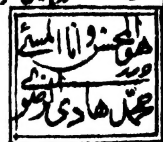 هو المحسن و انا المسئ
محمد هادی الرضوی